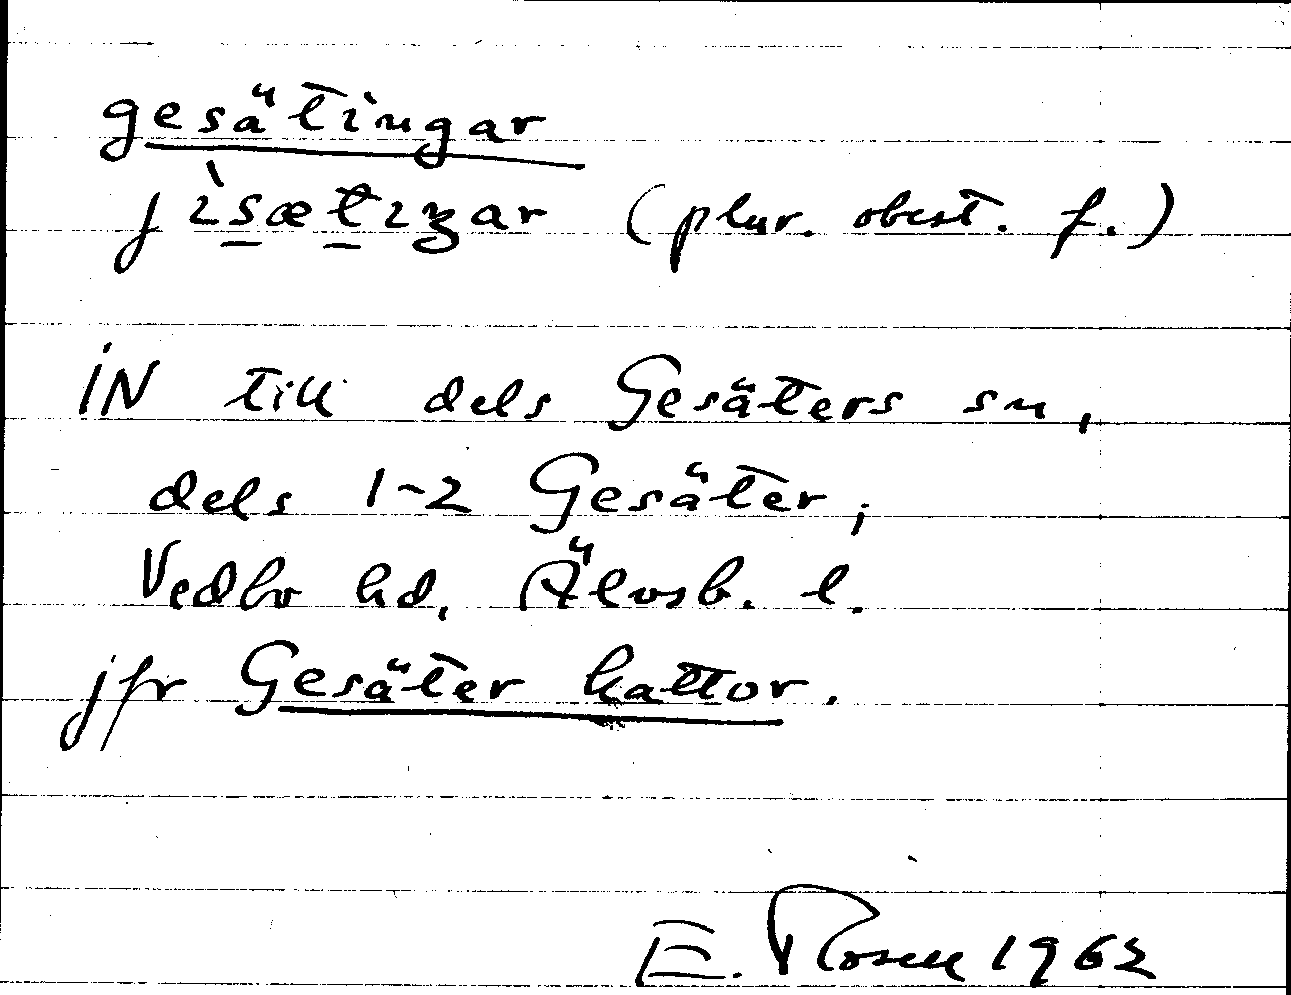 gesätingar
jìsætiꜫar (plur. obest. f.)
IN till dels Gesäters sn,
dels 1-2 Gesäter,
Vedbo hd, Älvsb. l.
jfr Gesäter kattor.
E. Rosell 1962